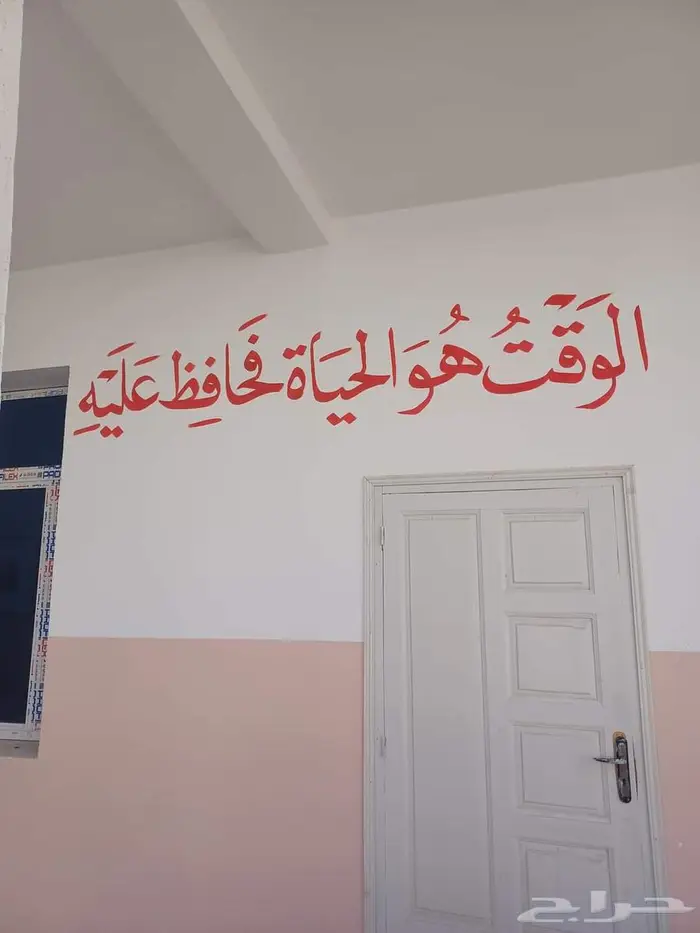 الوَقْتُ هُوَ الحيَاة فَحَافِظ عَلَيْهِ
حراج